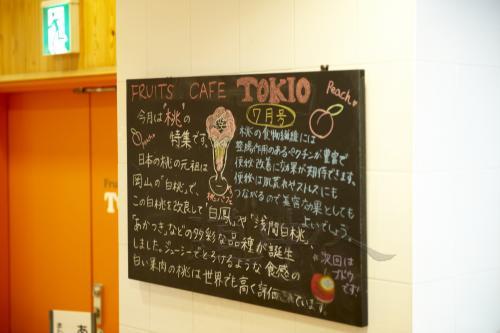 FRUITS CAFE TOKIO
7月号
Peach♥
今月は"桃"の
特集です。
peach
日本の桃の元祖は
岡山の「白桃」で、
この白桃を改良して「白鳳」や「浅間白桃」、
「あかつき」などの多彩な品種が誕生
しました。ジューシーでとろけるような食感の
白い果肉の桃は世界でも高く評価されています。
桃パフェ
桃の食物繊維には
整腸作用のあるペクチンが豊富で
便秘改善に効果が期待できます。
便秘は肌荒れやストレスにも
つながるので美容効果としても
よいでしょう
次回は
ブドウ
です!
Fru
TO
あ